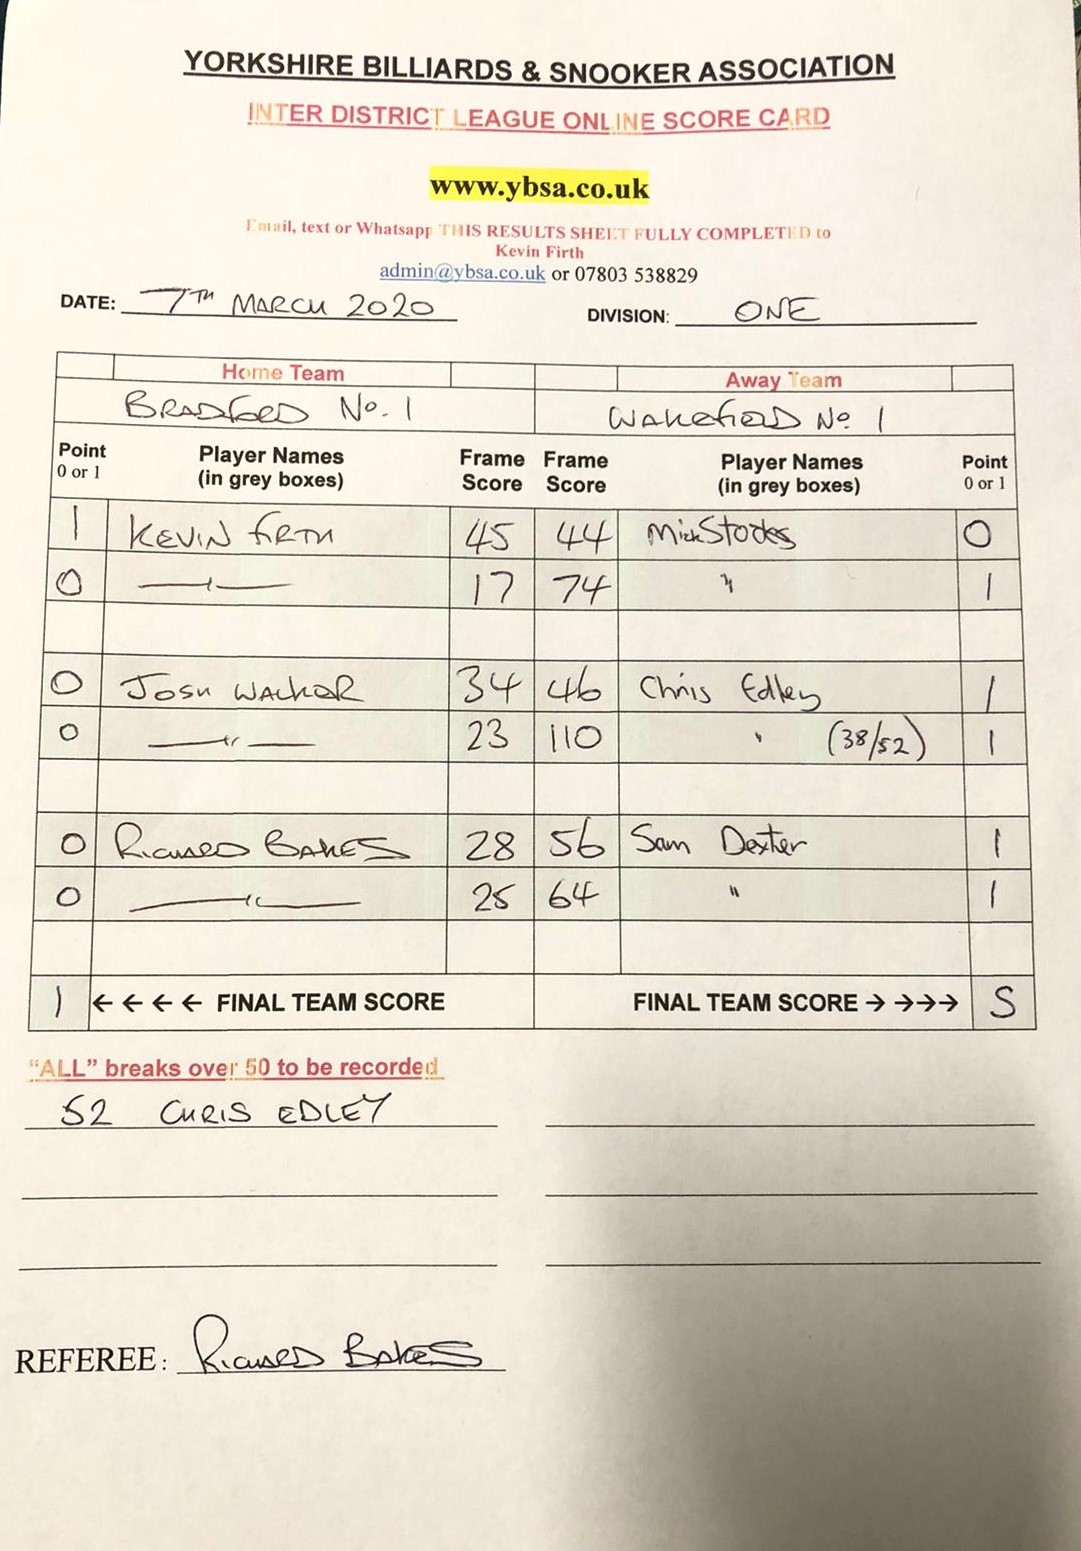 YORKSHIRE BILLIARDS & SNOOKER ASSOCIATION
INTER DISTRICT LEAGUE ONLINE SCORE CARD
www.ybsa.co.uk
Email, text or Whatsapp THIS RESULTS SHEET FULLY COMPLETED to
Kevin Firth
admin@ybsa.co.uk or 07803 538829
DATE: 7TH MARCH 2020 DIVISION: ONE
Home Team Away Team
BRADFORD No. 1 WAKEFIELD No 1
Point 0 or 1 Player Names (in grey boxes) Frame Score Frame Score Player Names (in grey boxes) Point 0 or 1
1 KEVIN FIRTH 45 44 Mick 0
0 —"— 17 74 " 1
0 JOSH WALKER 34 46 Chris Edley 1
0 —"— 23 110 " (38/52) 1
0 RICHARD BAKES 28 56 Sam Dexter 1
0 —"— 25 64 " 1
1 ←←←← FINAL TEAM SCORE FINAL TEAM SCORE →→→→ 5
"ALL" breaks over 50 to be recorded
52 CHRIS EDLEY
REFEREE: RICHARD BAKES